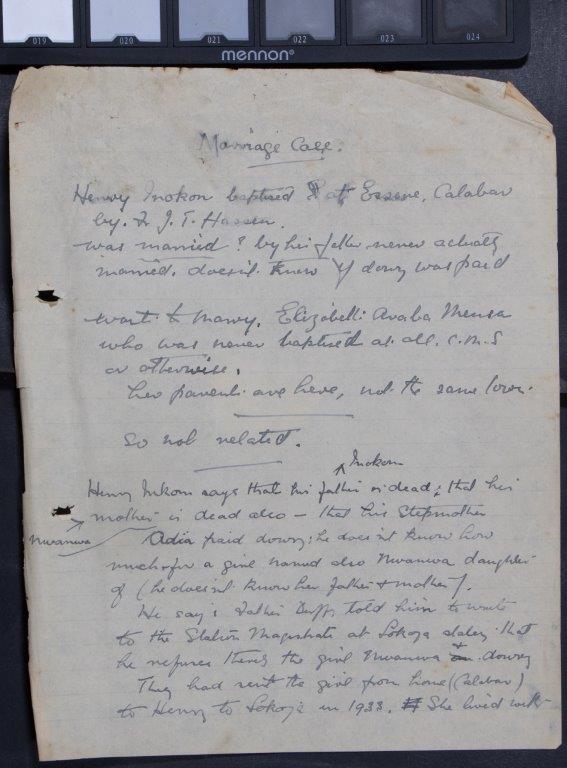 019 020 021 022 023 024
mennon®
Marriage Case.
Henry Inokon baptised at Essene, Calabar
by. Fr J. T. Hassen.
was married? by his father never actually
married. doesn't know if dowry was paid
want to marry. Elizabeth Araba Mensa
who was never baptised at all. C.M.S
or otherwise.
her parents are here, not the same town.
So not related.
Inokon
Henry Inkom says that his father is dead; that his
mother is dead also — that his Stepmother
Nwanwa
Adia paid dowry; he doesn't know how
much for a girl named also Nwanwa daughter
of (he doesn't know her father & mother).
He says Father told him to write
to the Station Magistrate at Lokoja that
he refuses the girl Nwanwa & dowry
They had sent the girl from home (Calabar)
to Henry to Lokoja in 1933. She lived with